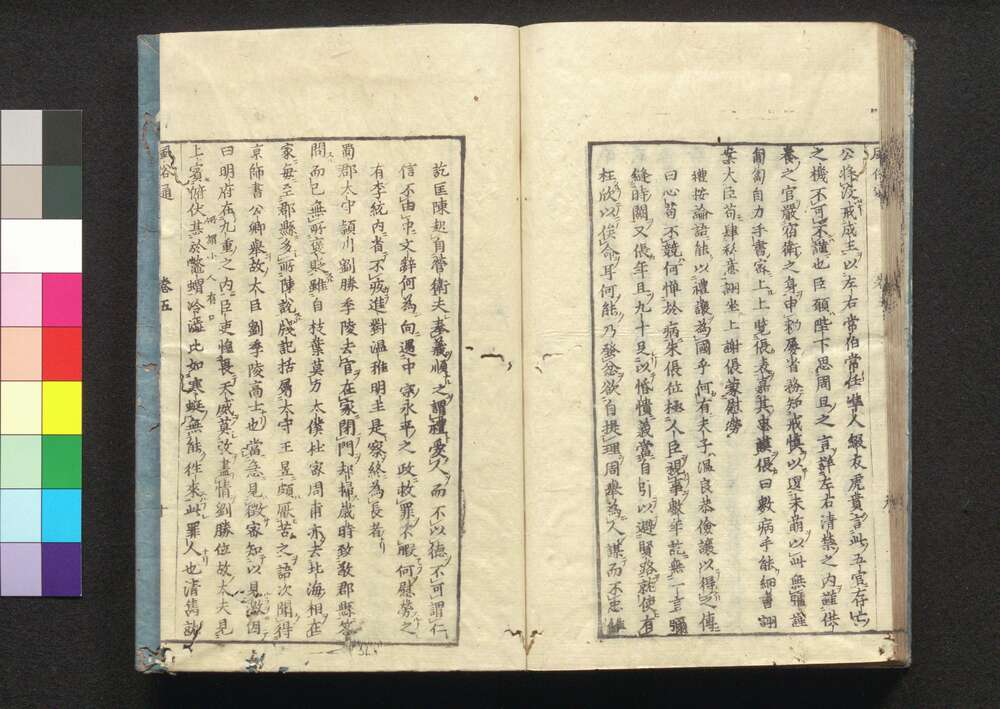 公將沒戒成王以左右常伯常任準人綴衣虎賁言此五官存亡
之機不可不謹也臣願陛下思周旦之言詳左右清禁之内謹供
養之官嚴宿衛之身申勑屢省務知戒慎以遏未萌以叫無疆謹
匍匐自力手書密上上覽倀表嘉其忠謨倀曰數病手能細書詡
案大臣苟肆私意詡坐上謝倀蒙慰勞
謹按論語能以禮讓為國乎何有夫子溫良恭儉讓以得之傳
曰心苟不競何憚於病朱倀位極人臣視事數年訖無一言彌
縫時闕又倀年且九十足以惛憒義當自引以避賢路就使有
枉欣以俟命耳何能乃發忿欲自提理周舉為人謀而不忠
訖匡陳起自營衛夫奉義順之謂禮愛人而不以德不可謂仁
信不由中文辭何為向遇中宗永平之政救罪不暇何慰勞之
有李統内省不疚進對溫雅明主是察終為長者
蜀郡太守頴川劉勝季陵去官在家閉門却掃歲時致敬郡縣答
問而已無所褒貶雖自枝葉莫力太僕杜密周甫亦去北海相在
家每至郡縣多所陳說牋記括屬太守王昱頗厭苦之語次聞得
京師書公卿舉故大臣劉季陵高士也當急見徵密知以見激因
曰明府在九重之内臣吏惶畏天威莫敢盡情劉勝位故大夫見
所謂小人有
上賓俯伏甚於鼈蝟冷澀比如寒蜒無能往來此罪人也清雋就
風俗通 卷五 十